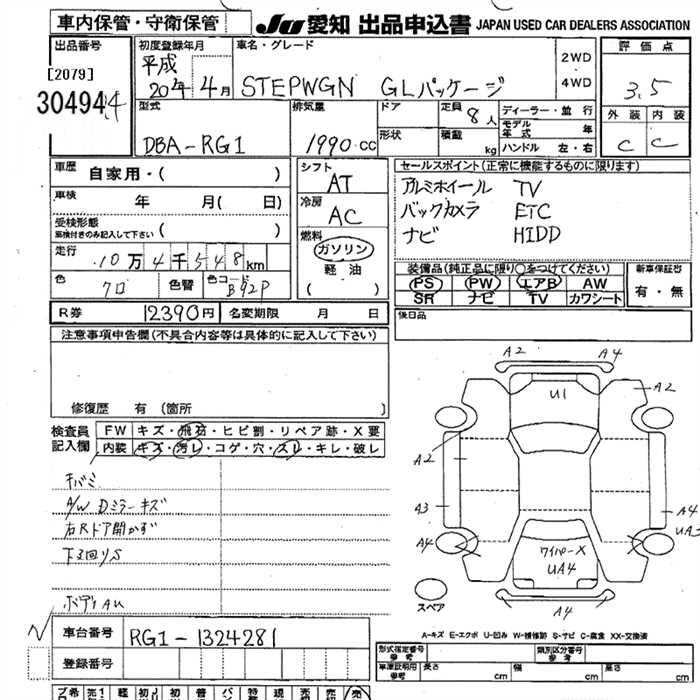 車内保管・守衛保管 JU 愛知 出品申込書 JAPAN USED CAR DEALERS ASSOCIATION
出品番号 初度登録年月 車名・グレード 2WD 評価点
[2079] 平成 20年 4月 STEPWGN GLパッケージ 4WD 3.5
30494 型式 排気量 ドア 定員 8人 ディーラー・並行 外装 内装
DBA-RG1 1990cc 形状 積載 kg モデル年式 年 C C
ハンドル 左・右
車歴 自家用・( ) シフト AT セールスポイント(正常に機能するものに限ります)
車検 年 月( 日) 冷房 AC アルミホイール TV
受検形態 バックカメラ ETC
(車検付きのみ記入して下さい) 燃料 ガソリン ナビ HIDD
走行 10万4千548km 軽油
装備品(純正品に限り○をつけてください) 新車保証書
色 クロ 色替 色コード B92P ( ) PS PW エアB AW 有・無
SR ナビ TV カワシート
R券 12390円 名変期限 月 日 後日品
注意事項申告欄(不具合内容等は具体的に記入して下さい)
修復歴 有 (箇所 )
検査員記入欄 FW キズ・飛石・ヒビ割・リペア跡・X要
内装 キズ・汚レ・コゲ・穴・スレ・キレ・破レ
A/W Dミラーキズ
右Rドア開かず
下回りS
ボディAU
A2 A4
U1 A2
A2
A3 A4
A4 UA3
ワイパーX
UA4
スペア A4
A-キズ E-エクボ U-凹み W-補修跡 S-サビ C-腐食 XX-交換済
車台番号 RG1-1324281
登録番号
型式指定番号 参考 類別区分番号 参考
車庫証明用 参考 長さ cm 幅 cm 高さ cm